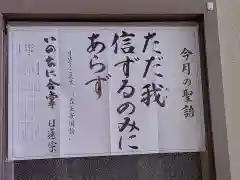 今月の聖語
ただ我
信ずるのみに
あらず
いのちに合掌 日蓮宗